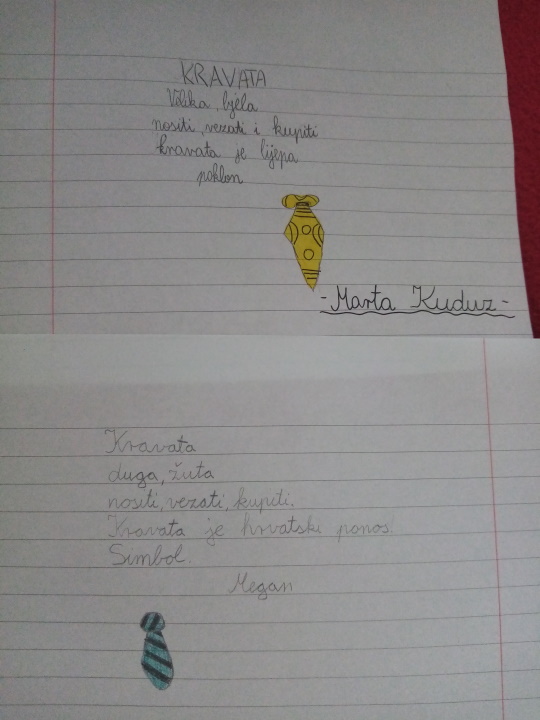 KRAVATA
Velika, bjela
nositi, vezati i kupiti
kravata je lijepa
poklon
-Marta Kuduz-
Kravata
duga, žuta
nositi, vezati, kupiti.
Kravata je hrvatski ponos.
Simbol.
Megan